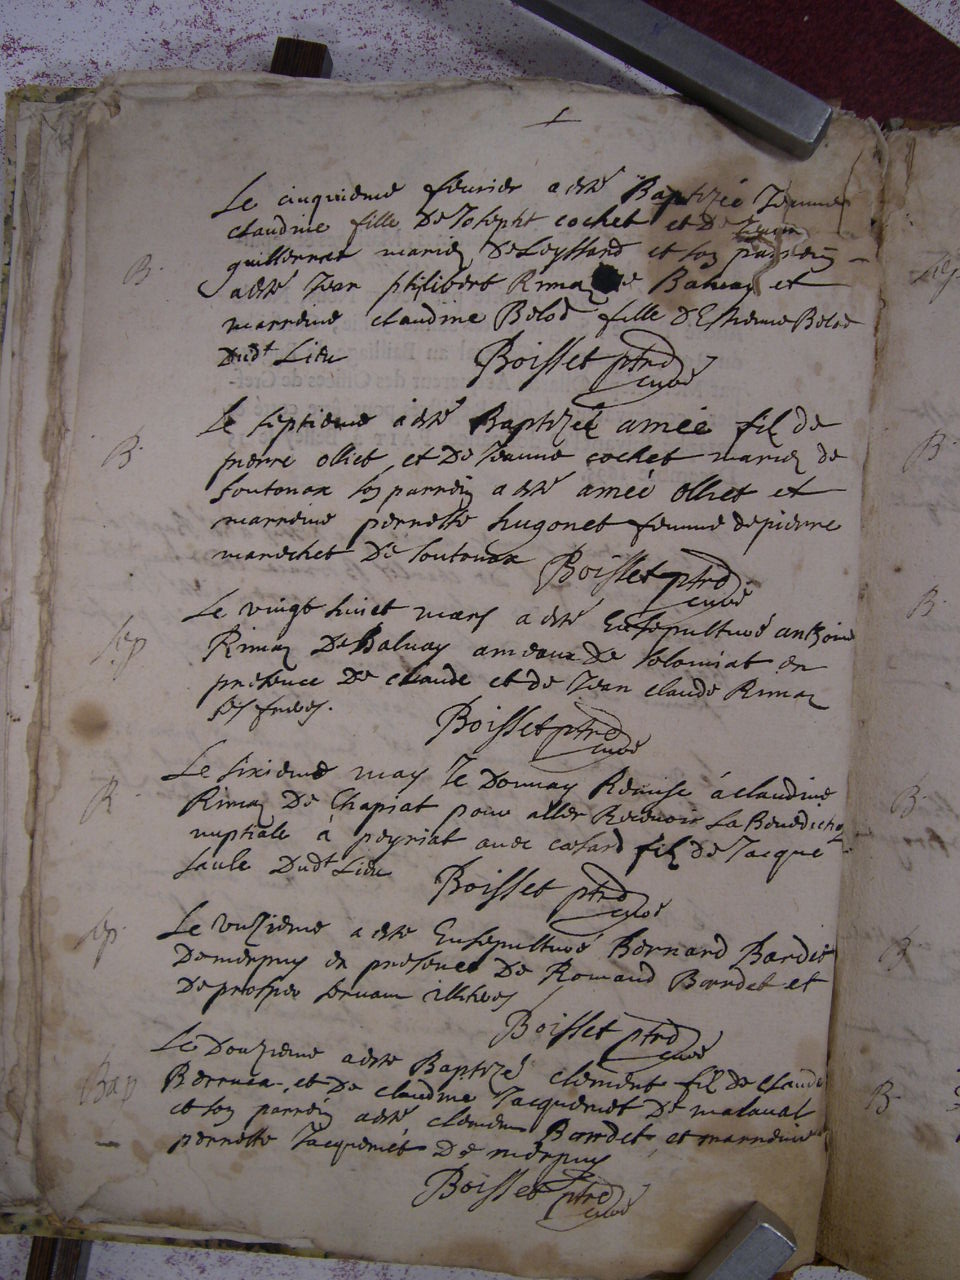 Le cinquieme feurier a esté Baptizée Jeanne
claudine fille De Joseph cochet et De
guillermet mariez De Leyssard et son parrein
a esté Jean philibert Rimaz De Baluay et
marreine claudine Belod fille D'Estienne Belod
Dudt Lieu Boisset ptre
curé
B.
Le septieme a esté Baptizé amée filz de
pierre olliet et De Jeanne cochet mariez de
soutonax son parrein a esté amée olliet et
marreine pernette hugonet femme de pierre
marechet De soutonax Boisset ptre
curé
B.
Le vingt huict mars a esté Ensepulturé anthoine
Rimaz De Baluay ameaux De Solomiat en
presence De claude et de Jean claude Rimaz
ses freres. Boisset ptre
curé
Sep
Le sixieme may Je Donnay Remise à claudine
Rimaz De Chapiat pour aller Receuoir La Benediction
nuptiale à peyriat auec cesard filz de Jacque
saule Dudt Lieu Boisset ptre
curé
R.
Le unzieme a esté Ensepulturé Bernard Bardet
De merpuy en presence De Romand Bardet et
De prosper seruan illiteres
Boisset ptre
curé
sep.
Le Douzieme a esté Baptizé clement filz de claude
et De claudine Jacquemet De malaual
et son parrein a esté clement Bardet et marreine
pernette Jacquemet De merpuy
Boisset ptre
curé
Bap
B.
B.
B.
B.
B.